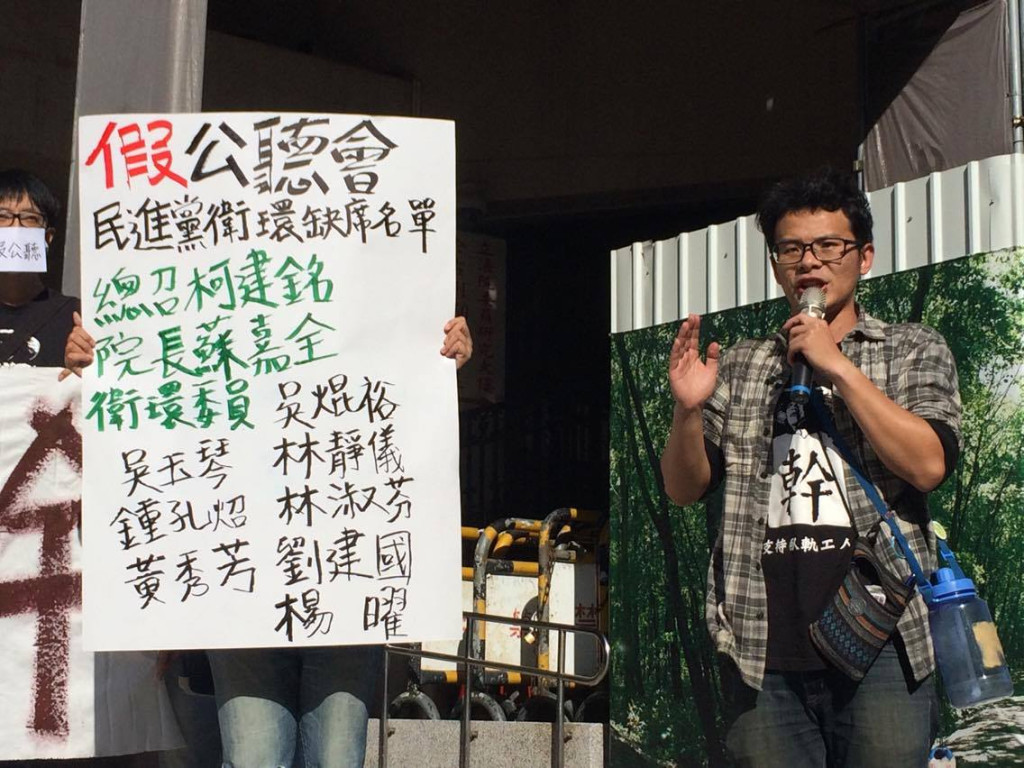 假公聽會
民進黨衛環缺席名單
總召柯建銘
院長蘇嘉全
衛環委員 吳焜裕
吳玉琴 林靜儀
鍾孔炤 林淑芬
黃秀芳 劉建國
楊曜
公聽
幹
支持臥軌工人